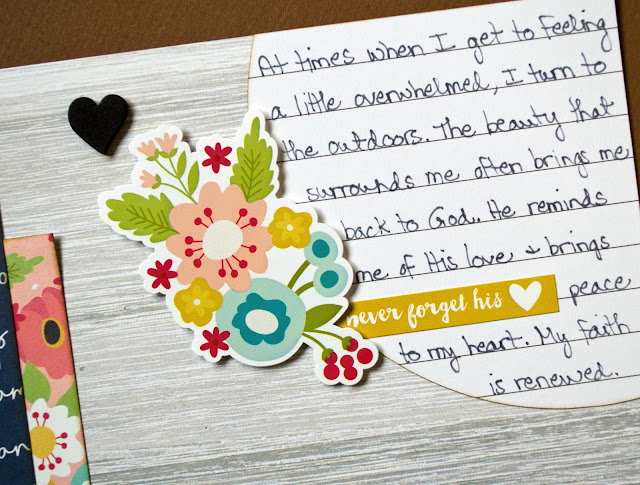 At times when I get to feeling
a little overwhelmed, I turn to
the outdoors. The beauty that
surrounds me often brings me
back to God. He reminds
me of His love & brings
never forget his
peace
to my heart. My faith
is renewed.